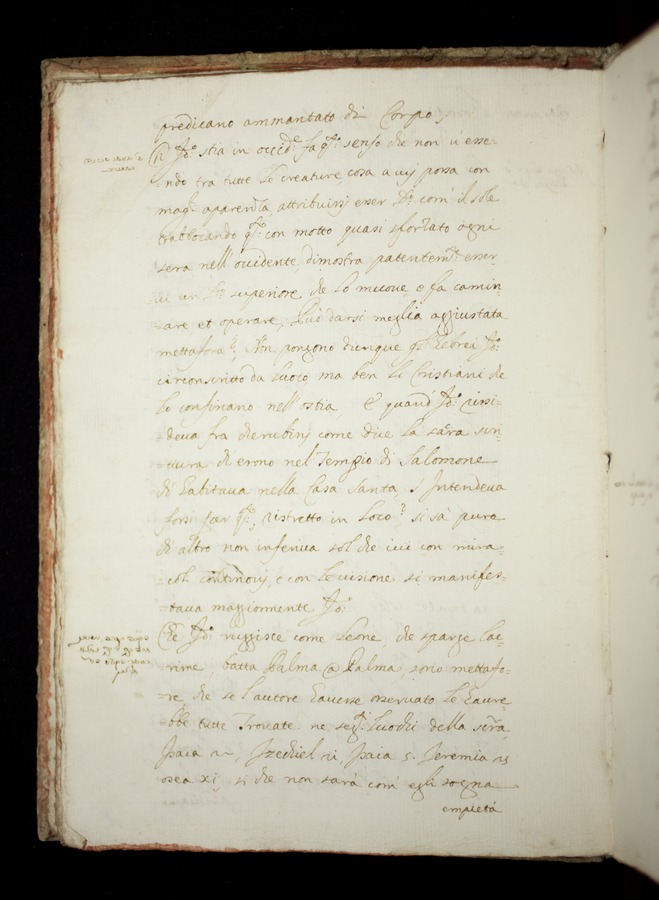 predicano ammantato di Corpo,
stia in occid.e fa q.o senso che non u'esse-
ndo tra tutte le creature, cosa a cuj possa con
mag.r aparenza attribuirsj esser D.o com' il sole
trabboccando q.o con motto quasi sforzato ogni
sera nell'occidente, dimostra patentem.te esser-
ui un superiore che lo muoue, e fa camin-
are et operare, può darsi meglio aggiustata
mettafora? Non pongono dunque gl'Hebrei
circonscritto da luoco ma ben li Cristiani che
lo confinano nell'ostia, E quand' rissi-
deua fra cherubinj come dice la sacra scri-
ttura ch'erono nel Tempio di Salomone
ch'habitaua nella Casa Santa, s'intendeua
forsi per q.o, ristretto in loco? si sà pure
ch'altro non inferiua sol che iui con mira-
coli continouj, e con le uisione si manifes-
taua maggiormente
Che ruggisce come leone, che sparge lac-
rime, batta Palma @ Palma, sono mettafo-
re che se l'autore hauesse osseruato le haure-
bbe tutte trouate ne seg.ti luochi della scr.a
Isaia Izechiel Isaia 5. Jeremia 25
osea xi, si che non sarà com' egli sogna
empietà